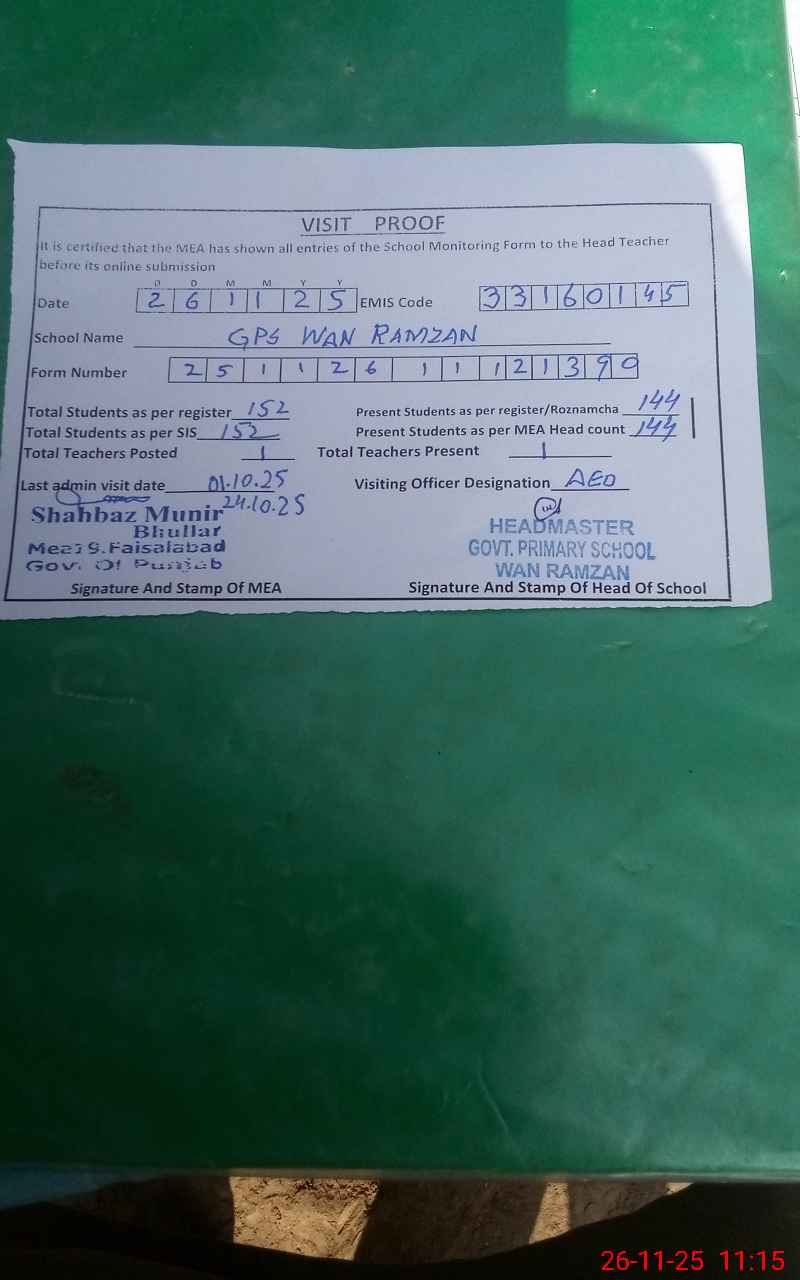 VISIT PROOF
It is certified that the MEA has shown all entries of the School Monitoring Form to the Head Teacher
before its online submission
D D M M Y Y
Date 2 6 1 1 2 5 EMIS Code 3 3 1 6 0 1 4 5
School Name GPS WAN RAMZAN
Form Number 2 5 1 1 2 6 1 1 1 2 1 3 9 0
Total Students as per register 152 Present Students as per register/Roznamcha 144
Total Students as per SIS 152 Present Students as per MEA Head count 144
Total Teachers Posted 1 Total Teachers Present 1
Last admin visit date 01.10.25 Visiting Officer Designation AEO
24.10.25
Shahbaz Munir
Bhullar
Faisalabad
Gov. Of Punjab
HEADMASTER
GOVT. PRIMARY SCHOOL
WAN RAMZAN
Signature And Stamp Of MEA Signature And Stamp Of Head Of School
26-11-25 11:15